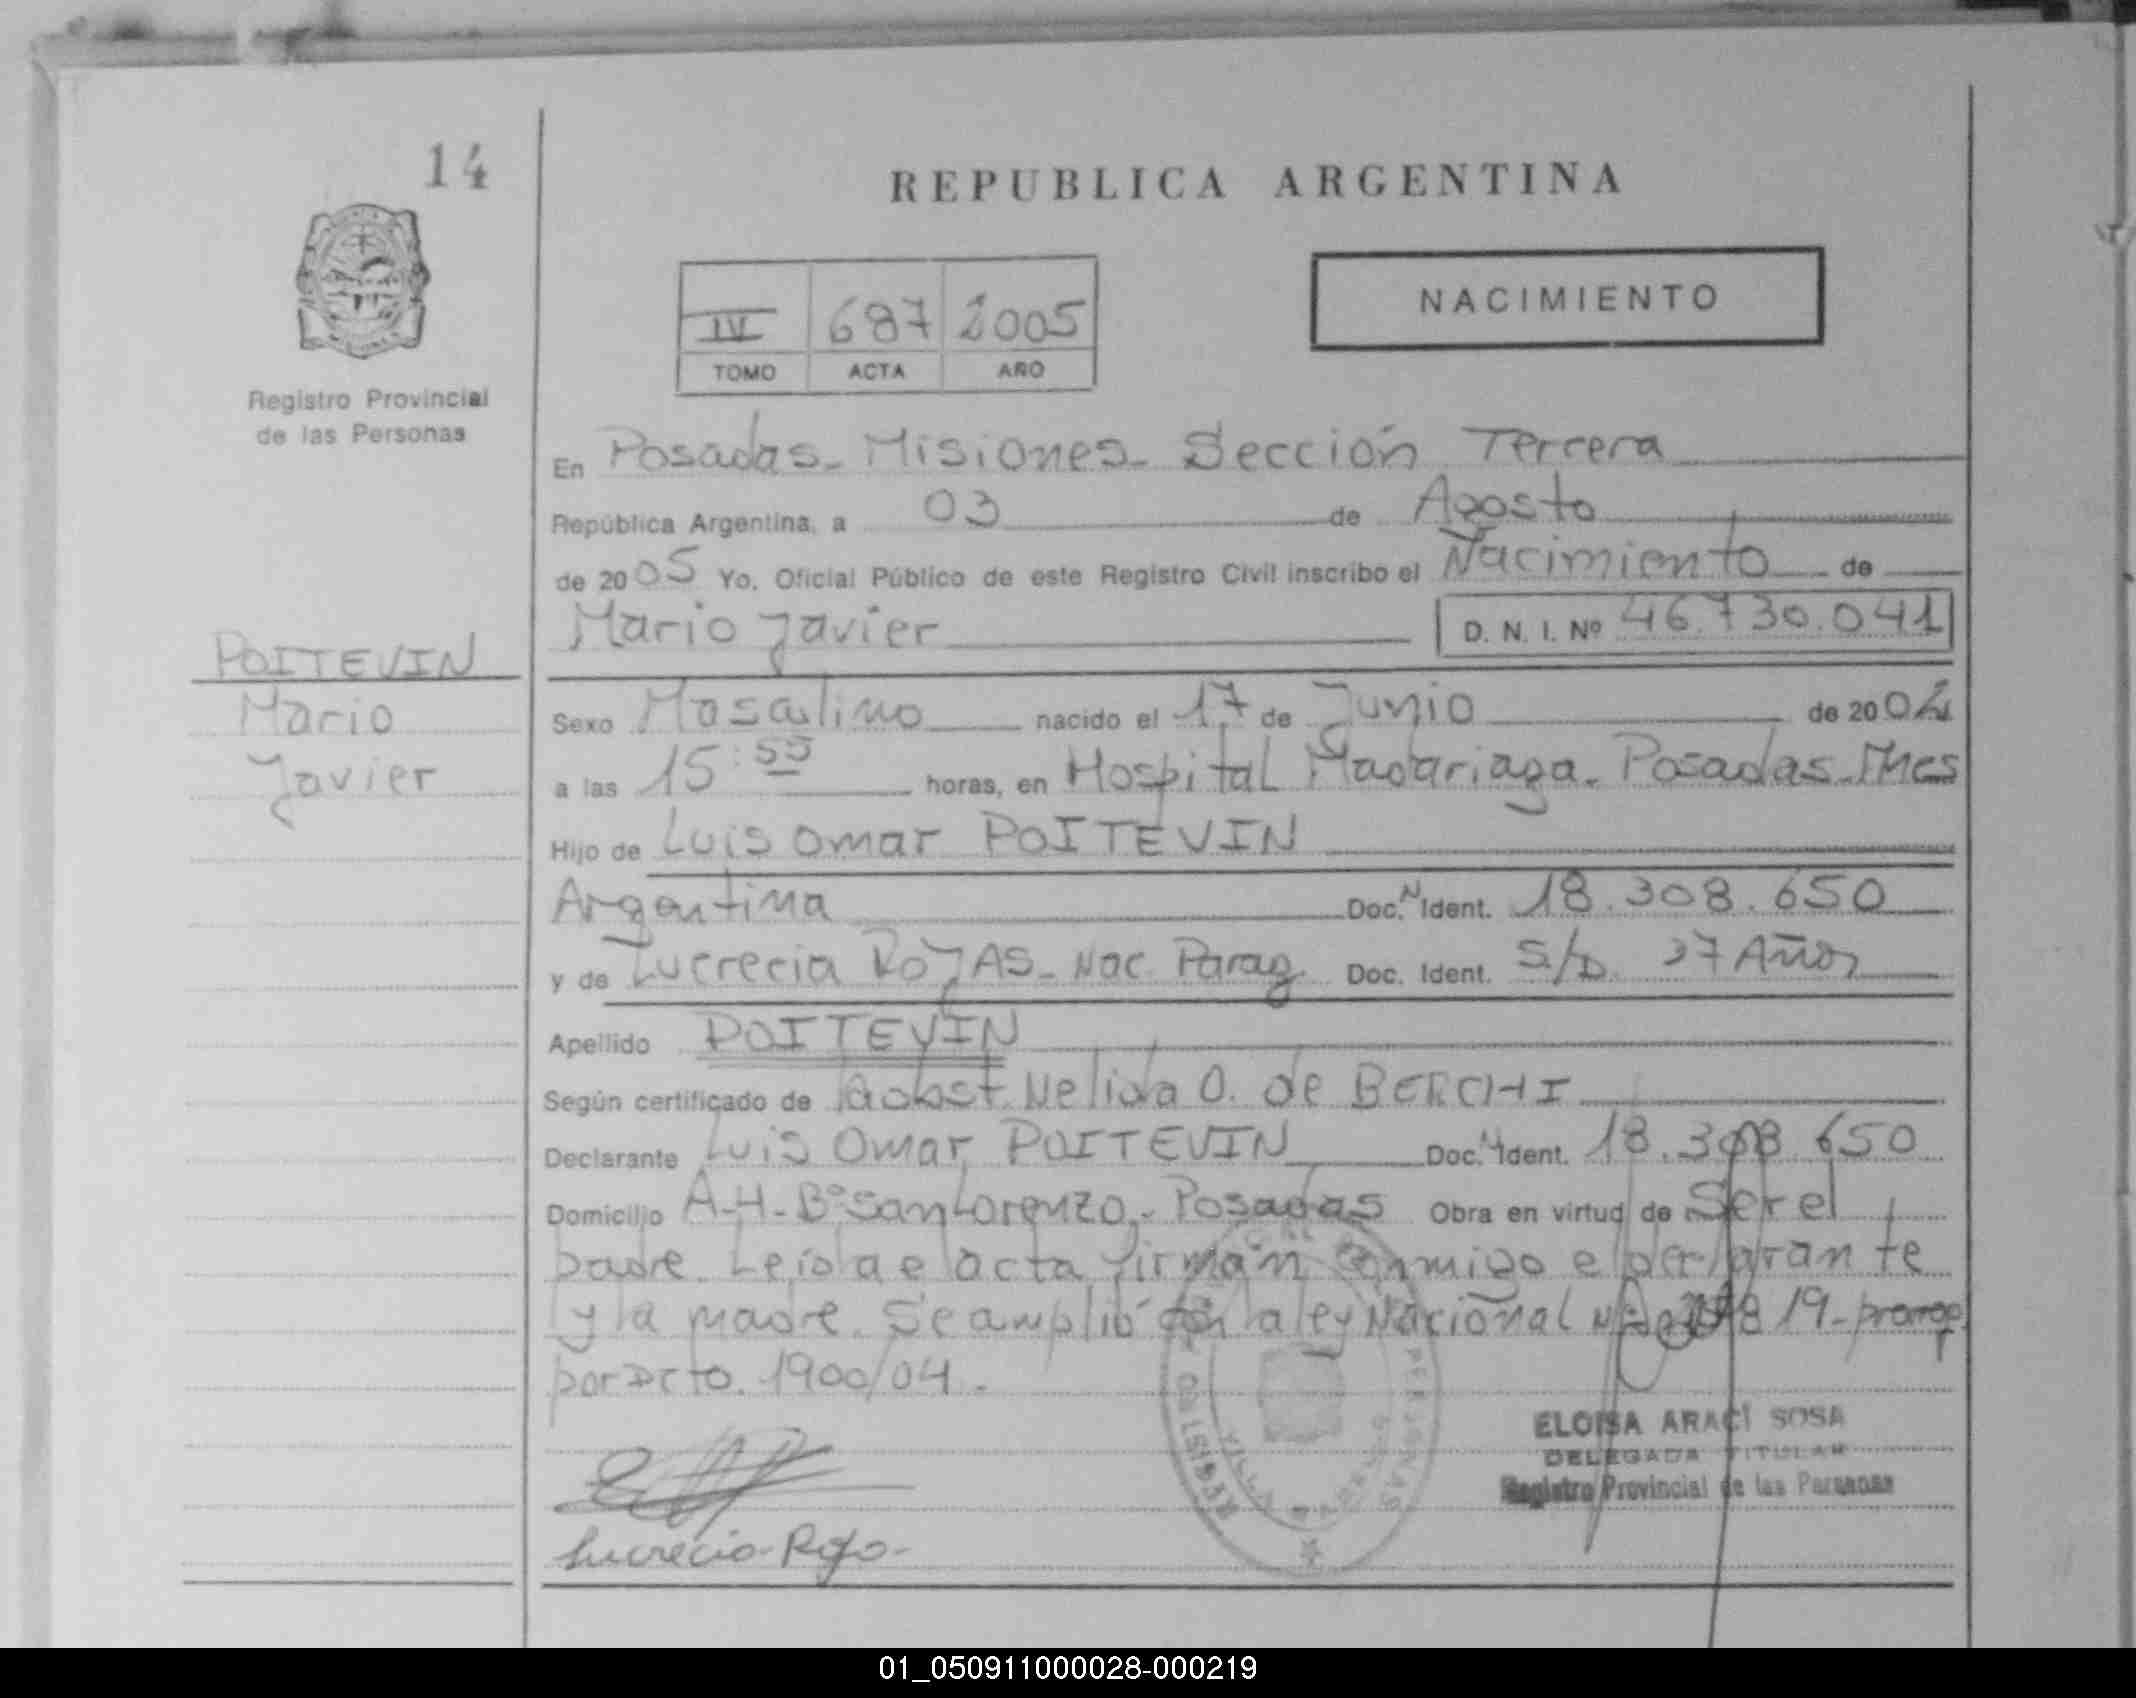 14
REPUBLICA ARGENTINA
IV 687 2005
TOMO ACTA AÑO
NACIMIENTO
Registro Provincial
de las Personas
En Posadas - Misiones - Sección Tercera
República Argentina, a 03 de Agosto
de 2005 Yo, Oficial Público de este Registro Civil inscribo el Nacimiento de
Mario Javier D. N. I. Nº 46.730.041
POITEVIN
Mario
Javier
Sexo Masculino nacido el 17 de Junio de 2004
a las 15:55 horas, en Hospital Madariaga - Posadas - Mnes
Hijo de Luis Omar POITEVIN
Argentina Doc. N Ident. 18.308.650
y de Lucrecia ROJAS - Nac. Parag. Doc. Ident. S/D. 37 Años
Apellido POITEVIN
Según certificado de la obst. Nelida O. de BERCHI
Declarante Luis Omar POITEVIN Doc. N Ident. 18.308.650
Domicilio A-H-Bº San Lorenzo - Posadas Obra en virtud de Ser el
padre. Leída el acta firman conmigo el declarante
y la madre. Se amplió con la ley Nacional 19 - prorrog.
por Dcto. 1900/04.
ELOISA ARACI SOSA
DELEGADA TITULAR
Registro Provincial de las Personas
Lucrecia Rojo
01_050911000028-000219